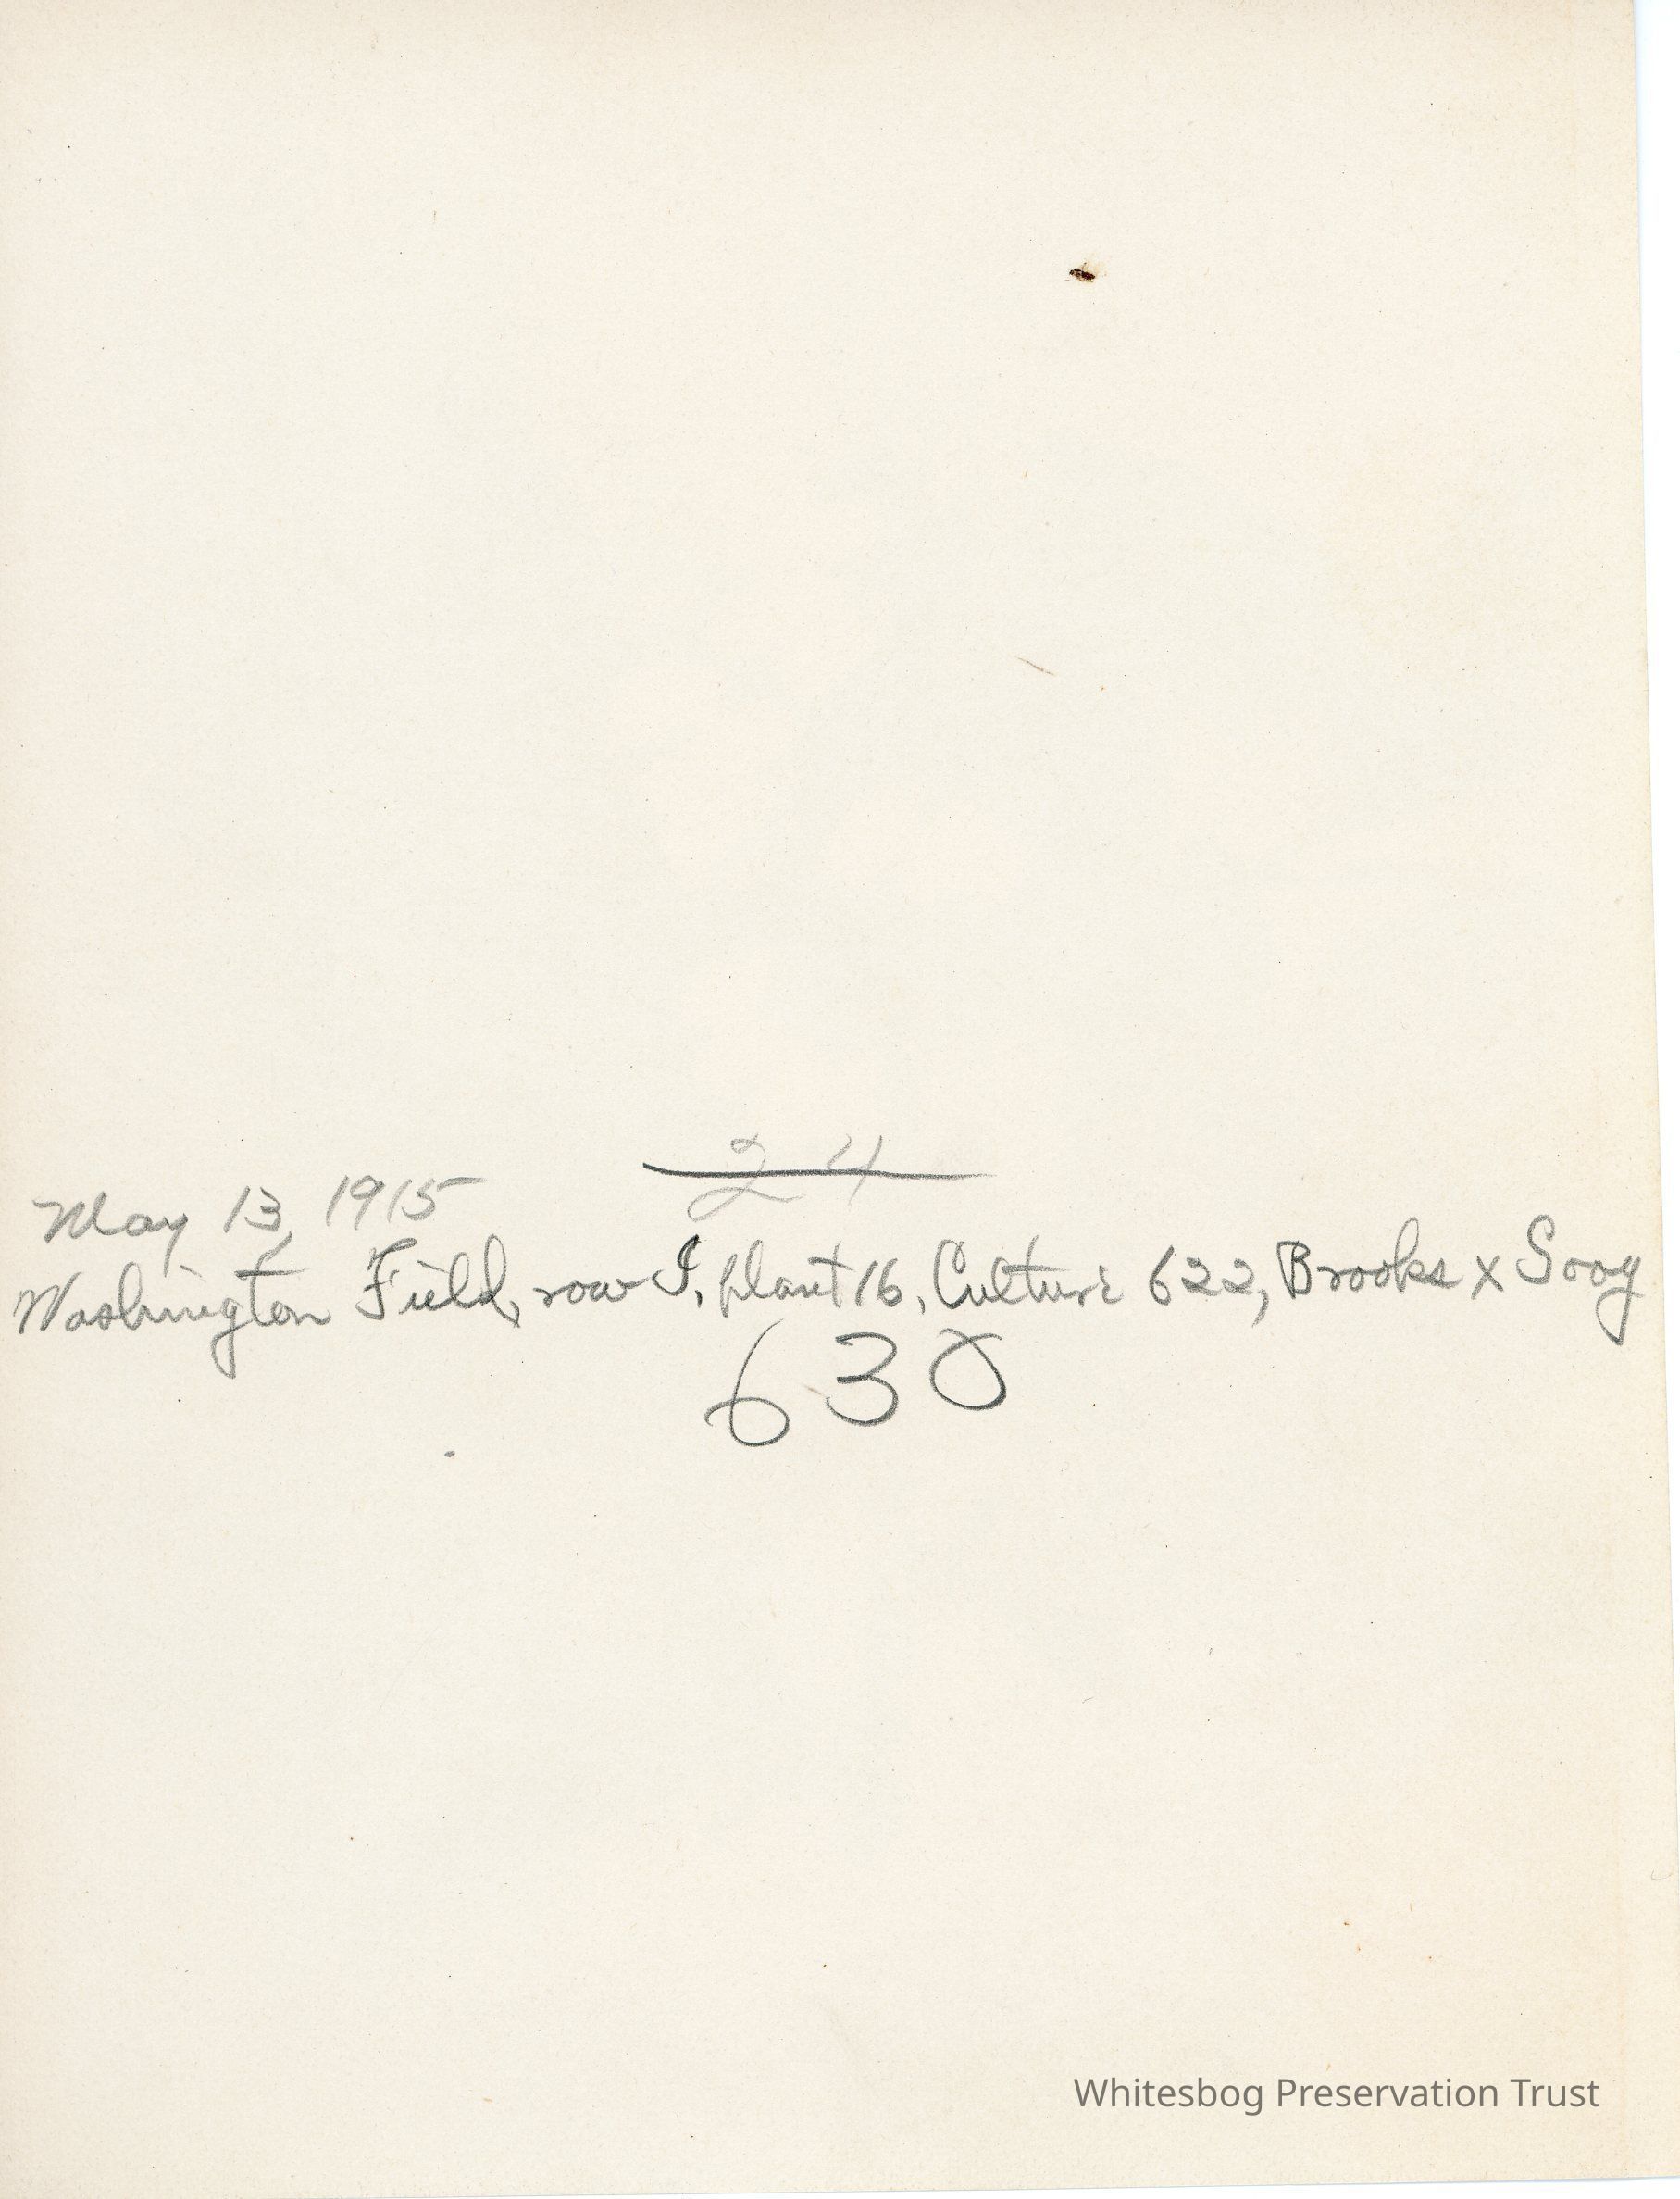 24
May 13, 1915
Washington Field, row I, plant 16, Culture 622, Brooks x Sooy
630
Whitesbog Preservation Trust